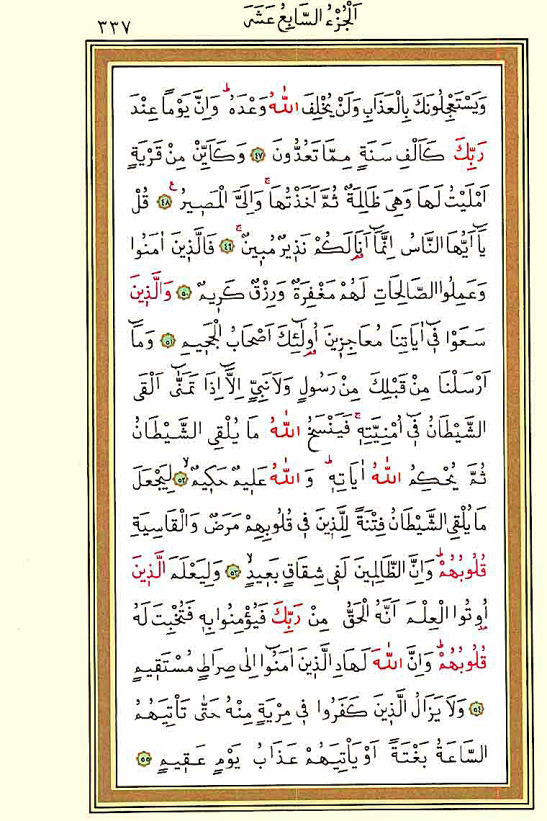 اَلْجُزْءُ السَّابِعُ عَشَرَ
٣٣٧
وَيَسْتَعْجِلُونَكَ بِالْعَذَابِ وَلَنْ يُخْلِفَ اللّٰهُ وَعْدَهُۜ وَاِنَّ يَوْماً عِنْدَ
رَبِّكَ كَاَلْفِ سَنَةٍ مِمَّا تَعُدُّونَ ﴿٤٧﴾ وَكَاَيِّنْ مِنْ قَرْيَةٍ
اَمْلَيْتُ لَهَا وَهِيَ ظَالِمَةٌ ثُمَّ اَخَذْتُهَاۚ وَاِلَيَّ الْمَص۪يرُ۟ ﴿٤٨﴾ قُلْ
يَٓا اَيُّهَا النَّاسُ اِنَّمَٓا اَنَا۬ لَكُمْ نَذ۪يرٌ مُب۪ينٌۚ ﴿٤٩﴾ فَالَّذ۪ينَ اٰمَنُوا
وَعَمِلُوا الصَّالِحَاتِ لَهُمْ مَغْفِرَةٌ وَرِزْقٌ كَر۪يمٌ ﴿٥٠﴾ وَالَّذ۪ينَ
سَعَوْا ف۪ٓي اٰيَاتِنَا مُعَاجِز۪ينَ اُو۬لٰٓئِكَ اَصْحَابُ الْجَح۪يمِ ﴿٥١﴾ وَمَٓا
اَرْسَلْنَا مِنْ قَبْلِكَ مِنْ رَسُولٍ وَلَا نَبِيٍّ اِلَّٓا اِذَا تَمَنّٰٓى اَلْقَى
الشَّيْطَانُ ف۪ٓي اُمْنِيَّتِه۪ۚ فَيَنْسَخُ اللّٰهُ مَا يُلْقِي الشَّيْطَانُ
ثُمَّ يُحْكِمُ اللّٰهُ اٰيَاتِه۪ۜ وَاللّٰهُ عَل۪يمٌ حَك۪يمٌۙ ﴿٥٢﴾ لِيَجْعَلَ
مَا يُلْقِي الشَّيْطَانُ فِتْنَةً لِلَّذ۪ينَ ف۪ي قُلُوبِهِمْ مَرَضٌ وَالْقَاسِيَةِ
قُلُوبُهُمْۜ وَاِنَّ الظَّالِم۪ينَ لَف۪ي شِقَاقٍ بَع۪يدٍۙ ﴿٥٣﴾ وَلِيَعْلَمَ الَّذ۪ينَ
اُو۫تُوا الْعِلْمَ اَنَّهُ الْحَقُّ مِنْ رَبِّكَ فَيُؤْمِنُوا بِه۪ فَتُخْبِتَ لَهُ
قُلُوبُهُمْۜ وَاِنَّ اللّٰهَ لَهَادِ الَّذ۪ينَ اٰمَنُٓوا اِلٰى صِرَاطٍ مُسْتَق۪يمٍ
﴿٥٤﴾ وَلَا يَزَالُ الَّذ۪ينَ كَفَرُوا ف۪ي مِرْيَةٍ مِنْهُ حَتّٰى تَأْتِيَهُمُ
السَّاعَةُ بَغْتَةً اَوْ يَأْتِيَهُمْ عَذَابُ يَوْمٍ عَق۪يمٍ ﴿٥٥﴾